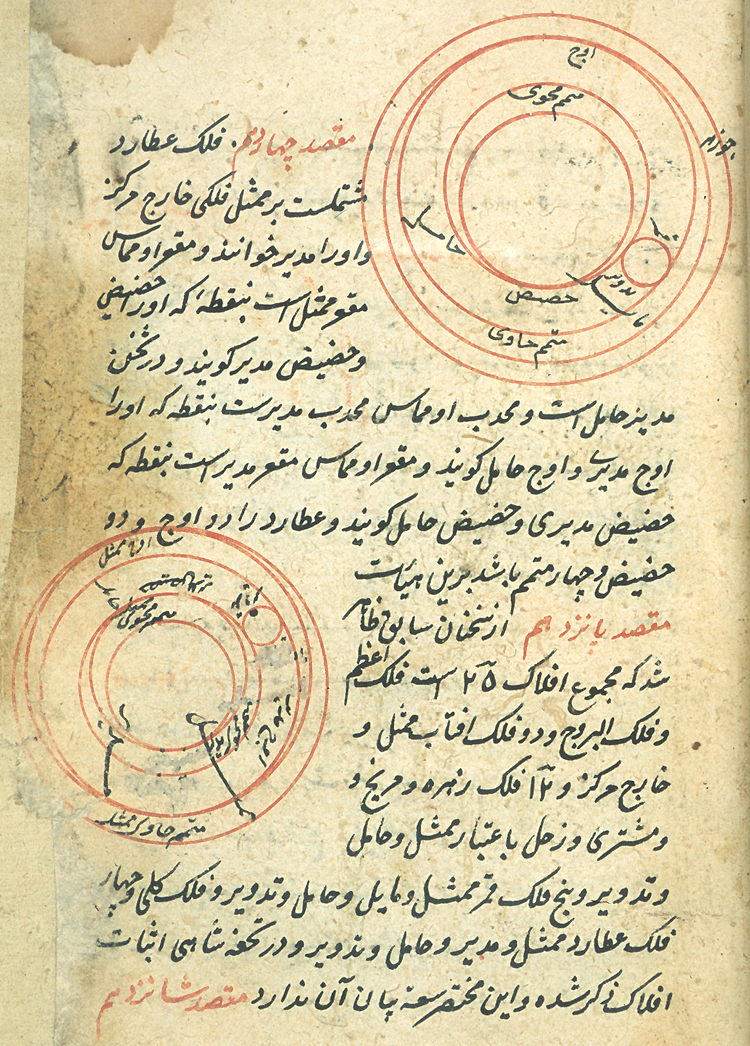 اوج
متمم محوی
جوزهر
حامل
تدویر
حضیض
متمم حاوی
مقصد چهاردهم فلک عطارد
مشتملست بر ممثل فلکی خارج مرکز
و اورا مدیر خوانند و مقعر او مماس
مقعر ممثل است بنقطه که اورا حضیض
و حضیض مدیر کویند و در ثخن
مدیر حامل است و محدب او مماس محدب مدیرست بنقطه که اورا
اوج مدیری و اوج حامل کویند و مقعر او مماس مقعر مدیر است بنقطه که
حضیض مدیری و حضیض حامل کویند و عطارد را دو اوج و دو
حضیض و چهار متمم باشد برین هیأت
اوج ممثل
متمم محوی
متمم حاوی ممثل
مقصد پانزدهم از سخنان سابق ظاهر
شد که مجموع افلاک ۲۵ است فلک اعظم
و فلک البروج و دو فلک افتاب ممثل و
خارج مرکز و ۱۲ فلک زهره و مریخ و
و مشتری و زحل باعتبار ممثل و حامل
و تدویر و پنج فلک قمر ممثل و مایل و حامل و تدویر و فلک کلی و چهار
فلک عطارد ممثل و مدیر و حامل و تدویر و در تحفه شاهی اثبات
افلاک ذکر شده و این مختصر سعه بیان آن ندارد مقصد شانزدهم